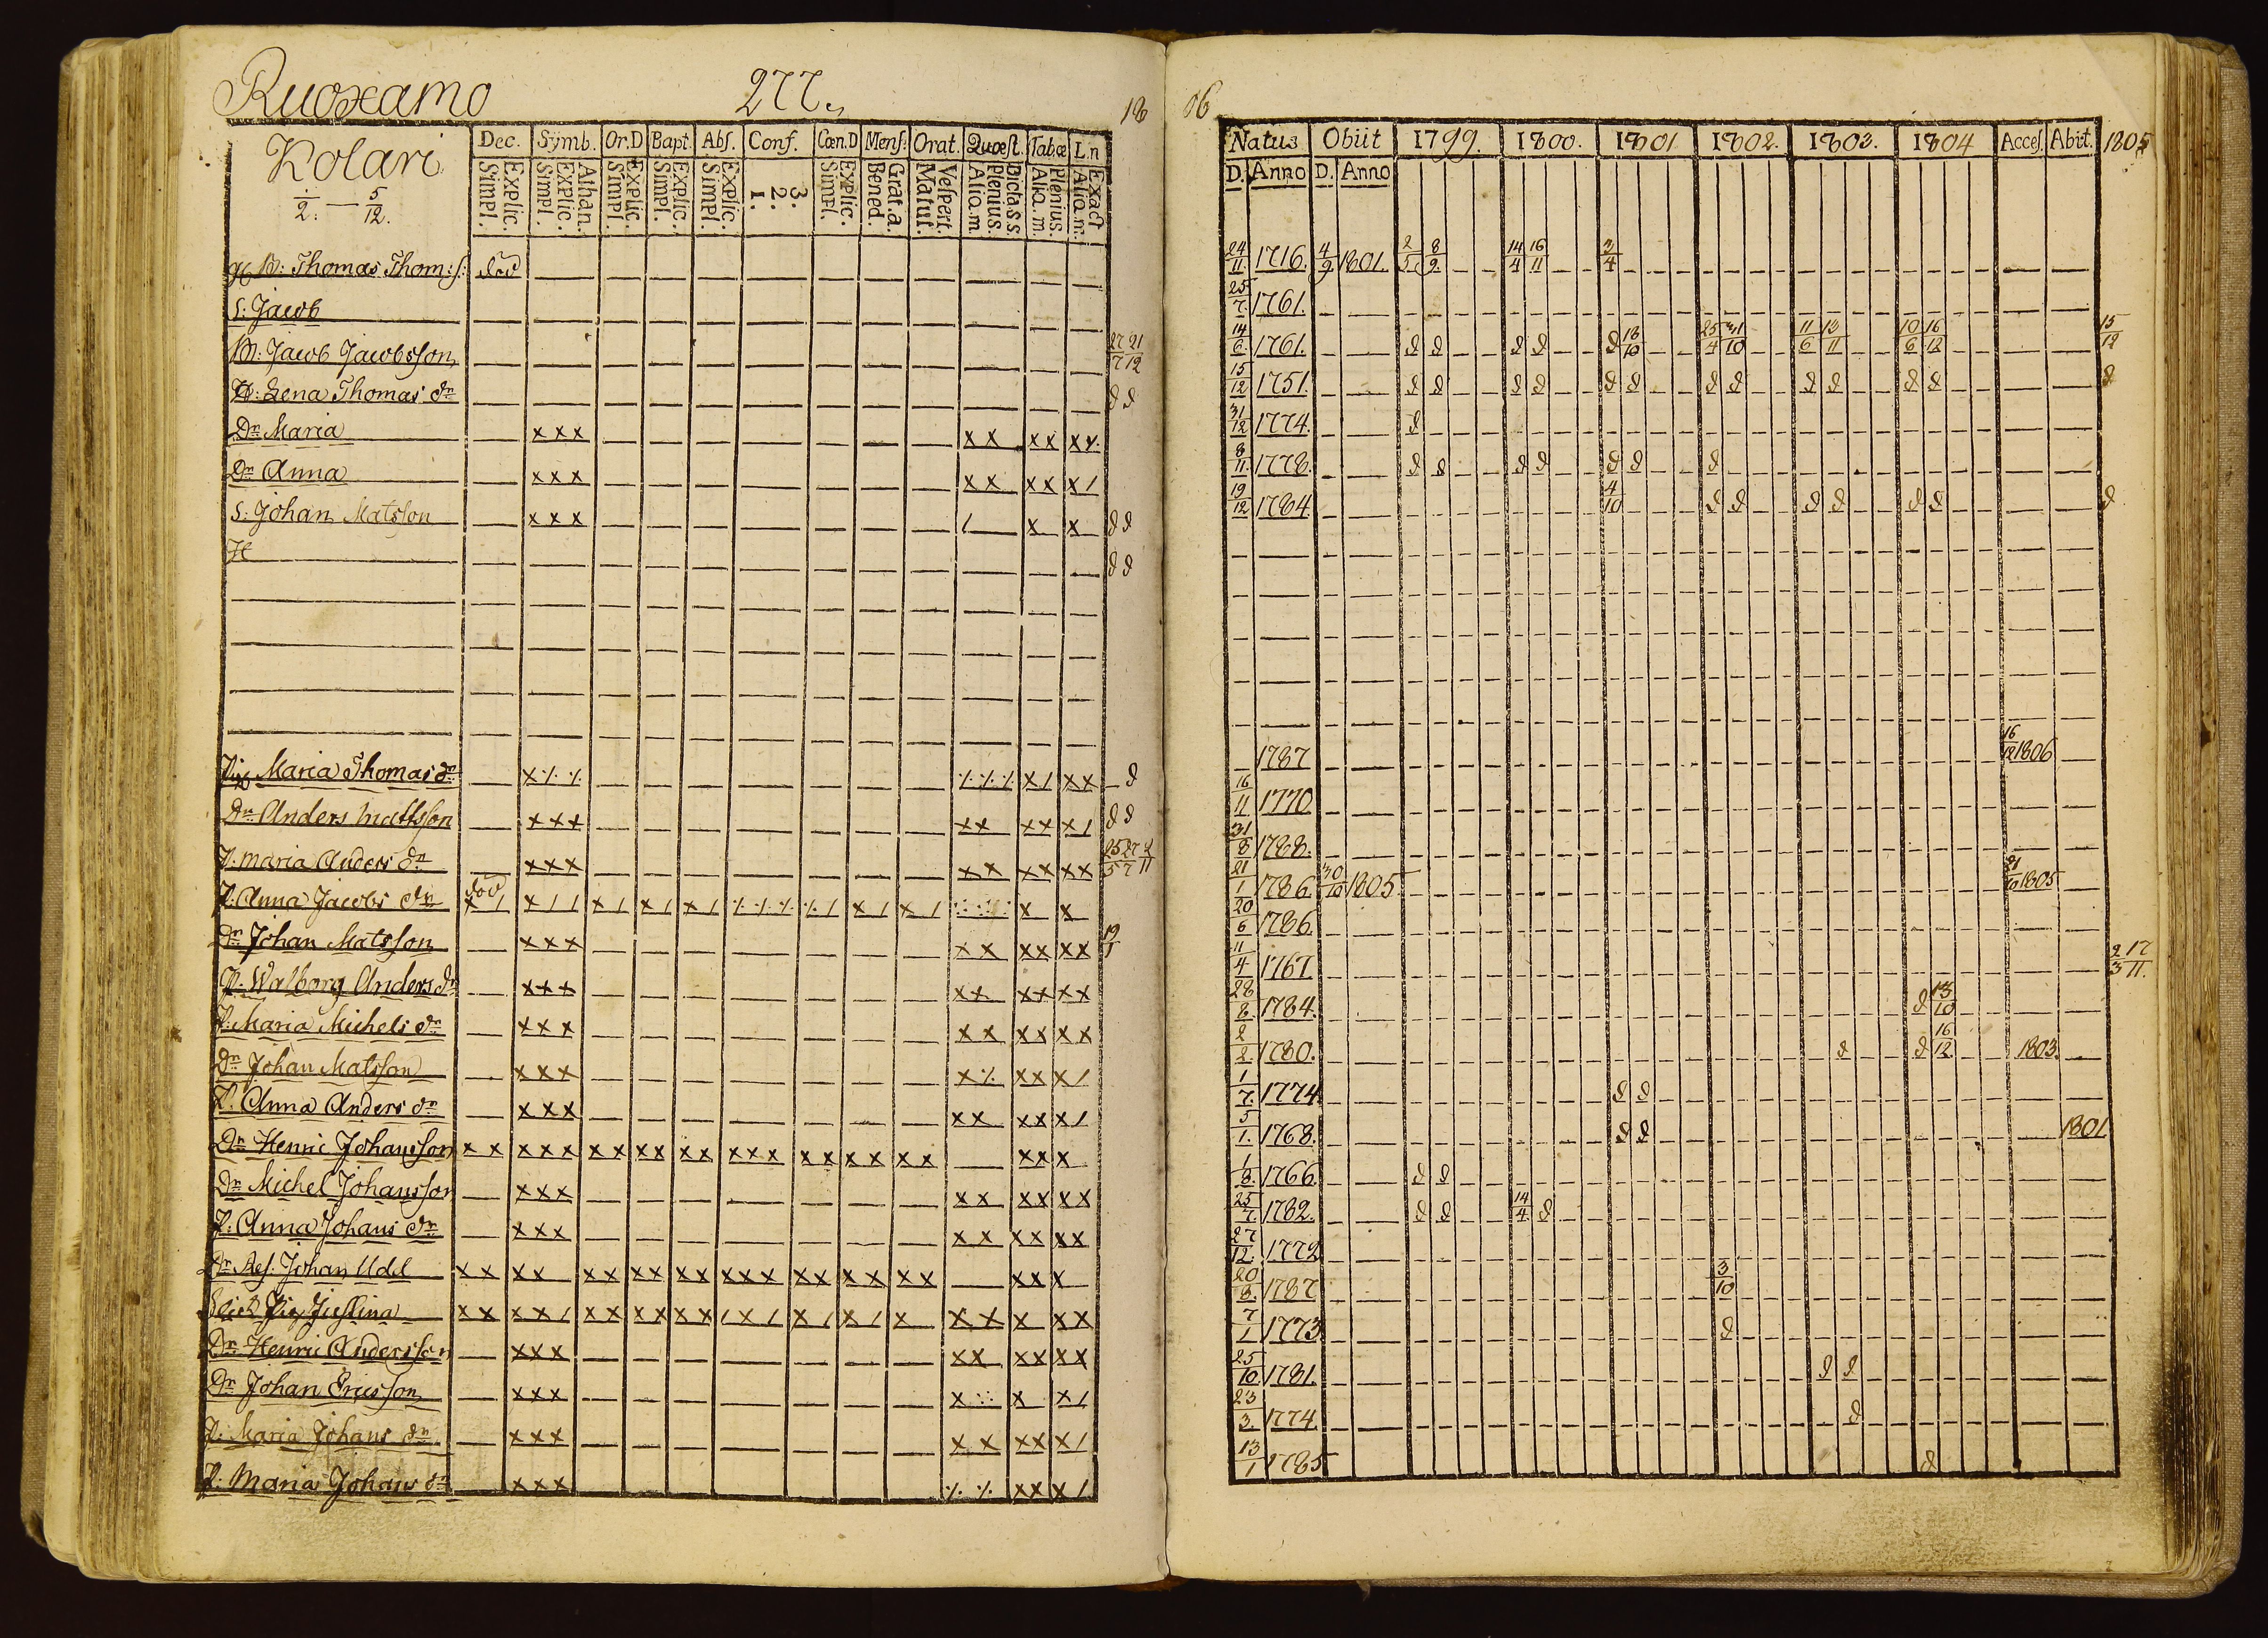 Ruoxamo 277. 18 06
Kolari
1/2. — 5/12.
Dec. Symb. Or.D Bapt. Abs. Conf. Cœn.D Mens: Orat. Quæst. Tabæ L.n
Explic. Simpl. Athan. Explic. Simpl. Explic. Simpl. Explic. Simpl. Explic. Simpl. 3. 2. 1. Explic. Simpl. Grat.a. Bened. Vespert. Matut. Dicta S.S. Plenius. Alia.m. Plenius. Alia.m. Exact Alia.m.
Natus Obiit 1799. 1800. 1801 1802. 1803. 1804 Acces. Abit. 1805
D. Anno D. Anno
B: Thomas Thom:s: död 24/11 1716. 4/9 1801. 2/5 8/9. 14/4 16/11 3/4
S: Jacob 25/7. 1761.
M: Jacob Jacobsson 27/7 21/12 14/6 1761. d d d d d 18/10 25/4 31/10 11/6 13/11 10/6 16/12 15/12
H: Lena Thomas dr d d 15/12 1751. d d d d d d d d d d d d d
Dr Maria x x x x x x x x x 31/12 1774. d
Dr Anna x x x x x x x x / 8/11. 1778. d d d d d d d
S: Johan Matsson x x x / x x d d 19/12 1784 4/10 d d d d d d d
H d d
Pig Maria Thomas dr x ·/· ·/· ·/· ·/· ·/· x / x x – d 1787 16/12 1806
Dr Anders Mattsson x x x x x x x x / d d 16/11 1770
P. Maria Anders dr x x x x x x x x x 25/5 27/7 2/11 31/8 1788.
P. Anna Jacobs dr död x / x / / x / x / x / ·/· ·/· ·/· ·/· / x / x / x x 21/1 1786. 30/10 1805 21/10 1805
Dr Johan Matsson x x x x x x x x x 19/1 20/6 1786.
P. Walborg Anders dr x x x x x x x x x 11/4 1767. 2/3 17/11.
P: Maria Michels dr x x x x x x x x x 28/8. 1784. d 13/10
Dr Johan Matsson x x x x ·/· x x x / 2/2. 1780. d d 16/12 1803.
P. Anna Anders dr x x x x x x x x / 1/7. 1774. d d
Dr Henric Johansson x x x x x x x x x x x x x x x x x x x x x x x 5/1. 1768. d d 1801
Dr Michel Johansson x x x x x x x x x 1/8. 1766. d d
P: Anna Johans dr x x x x x x x x x 25/7. 1782. d d 14/4 d
Dr Ref. Johan Udd x x x x x x x x x x x x x x x x x x x x x x 27/12. 1772
Pig Justina x x x x / x x x x x x / x / x / x / x x x x x x 20/8. 1787 3/10
Dr Henric Andersson x x x x x x x x x 7/1 1773. d
Dr Johan Ericsson x x x x x x / 25/10. 1781. d d
P: Maria Johans dr x x x x x x x x / 23/3. 1774. d
P: Maria Johans dr x x x ·/· ·/· x x x / 13/1 1785 d